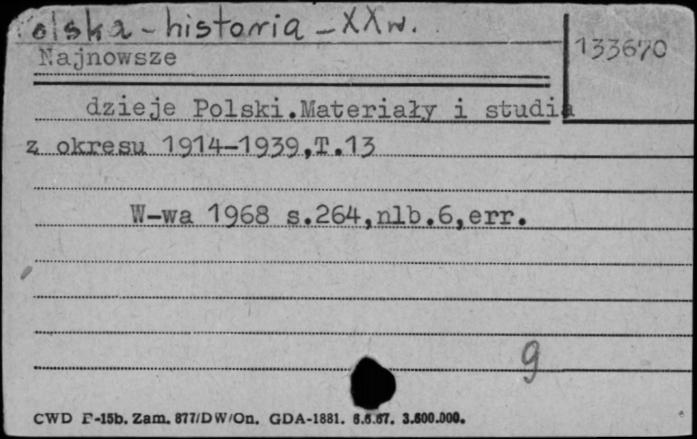 Polska - historia - XX w.
133670
Najnowsze
dzieje Polski.Materiały i studia
z okresu 1914-1939,T.13
W-wa 1968 s.264,nlb.6,err.
9
CWD P-15b. Zam. 877/DW/On. GDA-1881. 6.6.67. 3.600.000.